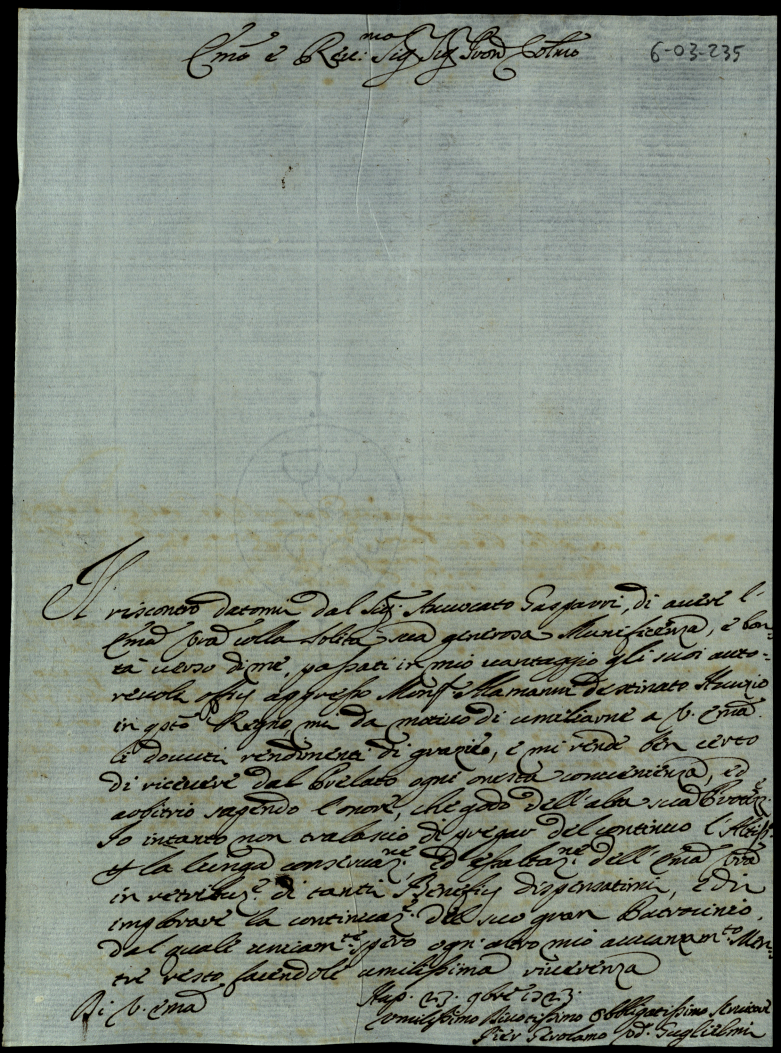 Emo e Reu.mo Sig Sig Pron Colmo
6-03-235
Il riscontro datomi dal Sig.r Auuocato Gasparri, di auere l'
Em̃a Vr̃a colla solita sua generosa Munificenza, e bon=
tà uerso di me, passati in mio uantaggio gli suoi auto=
reuoli offij appresso Monsr Alamanni destinato Nunzio
in qsto Regno, mi da motiuo di umiliarne a V. Em̃a
li douuti rendimenti di grazie, e mi rende ben certo
di riceuere dal Prelato ogni onesta conuenienza, ed
arbitrio sapendo l'onore, che godo dell'alta sua Protez.e
Io intanto non tralascio di pregar del continuo l'Altiss.o
p la lunga conseruaz.ne, ed esaltaz.ne dell'Em̃a Vr̃a
in retribuz.e di tanti Beneficj dispensatimi, e di
implorare la continuaz.e del suo gran Patrocinio,
dal quale unicam.te spero ogn'altro mio auanzam.to Men=
tre resto facendole umilissima riuerenza
Di V. Em̃a
Nap. 23. 9bre 1723.
Umilissimo Diuotissimo Obbligatissimo Seruitore
Pier Gerolamo Guglielmi